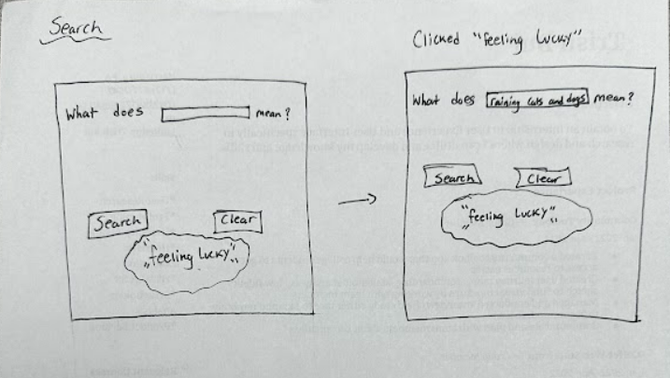 Search
What does mean?
Search Clear
"feeling Lucky"
Clicked "feeling Lucky"
What does raining cats and dogs mean?
Search Clear
"feeling Lucky"